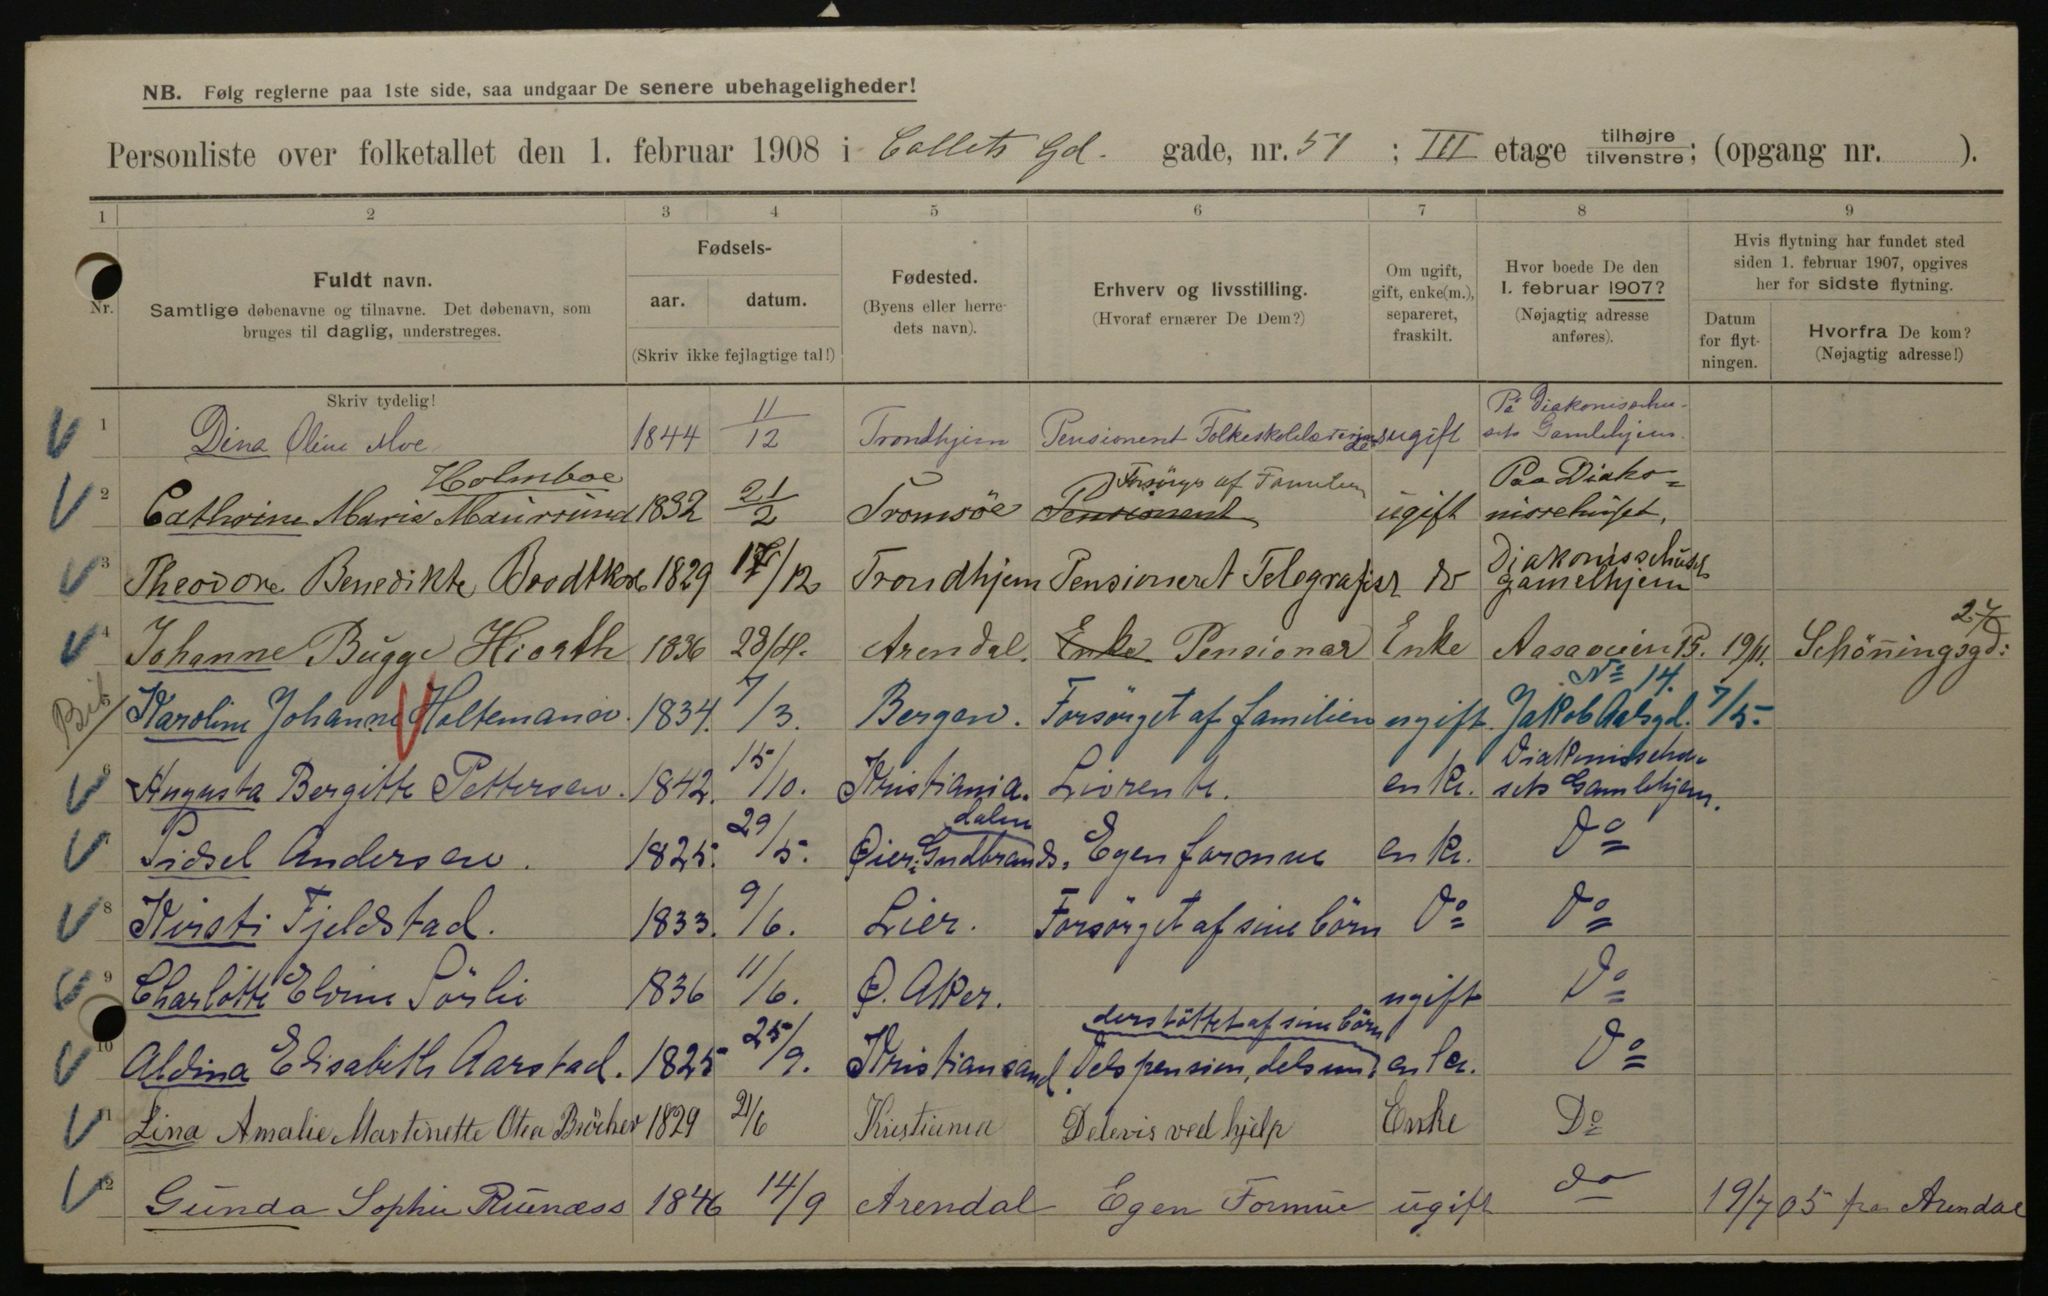 NB. Følg reglerne paa 1ste side, saa undgaar De senere ubehageligheder!
Personliste over folketallet den 1. februar 1908 i Collets Gd. gade, nr. 51; III etage tilhøjre tilvenstre; (opgang nr. ).
1 2 3 4 5 6 7 8 9
Nr.
Fuldt navn.
Samtlige døbenavne og tilnavne. Det døbenavn, som
bruges til daglig, understreges.
Skriv tydelig!
Fødsels-
aar. datum.
(Skriv ikke fejlagtige tal!)
Fødested.
(Byens eller herre-
dets navn).
Erhverv og livsstilling.
(Hvoraf ernærer De Dem?)
Om ugift,
gift, enke(m.),
separeret,
fraskilt.
Hvor boede De den
1. februar 1907?
(Nøjagtig adresse
anføres).
Hvis flytning har fundet sted
siden 1. februar 1907, opgives
her for sidste flytning.
Datum
for flyt-
ningen.
Hvorfra De kom?
(Nøjagtig adresse!)
1 Dina Oline Moe 1844 11/12 Trondhjem Pensionent Folkeskolelærerinde ugift På Diakonissehu-
sets Gamlehjem.
2 Cathrine Maria Maursund Holmboe 1832 21/2 Tromsöe Pensionent Forsörges af Familien ugift Paa Diako-
nissehuset.
3 Theodore Benedikte Boodtkor 1829 /12 Trondhjem Pensioneret Telegrafist do Diakonissehuset
gamelhjem
4 Johanne Bugge Hiorth 1836 28/ Arendal. Enke Pensionær Enke Aasaveien 15. 19/11. Schöningsgd: 27
Karoline Johanne Holtemann. 1834. 7/3. Bergen. Forsörget af familien ugift Jakob Aalsgd. No 14. 7/5.
6 Augusta Bergitte Pettersen. 1842. 15/10. Kristiania. Livrente. enke. Diakonissehu-
sets Gamlehjem.
Sidsel Andersen. 1825. 29/5. Öier. Gudbrands. dalen Egen formue enke. Do
8 Kirsti Fjeldstad. 1833. 9/6. Lier. Forsörget af sine börn Do Do
9 Charlotte Elvine Sörlie 1836 11/6. Ö. Aker. ugift Do
10 Aldina Elisabeth Aarstad. 1825 25/9. Kristiansand. Dels pension, dels un-
derstöttet af sine börn enke. Do
11 Lina Amalie Martinette Otea Bröcher 1829 21/6 Kristiania Delevis ved hjelp Enke Do
12 Gunda Sophie Ruenæss 1846 14/9 Arendal Egen Formue ugift do 19/7 05 fra Arendal